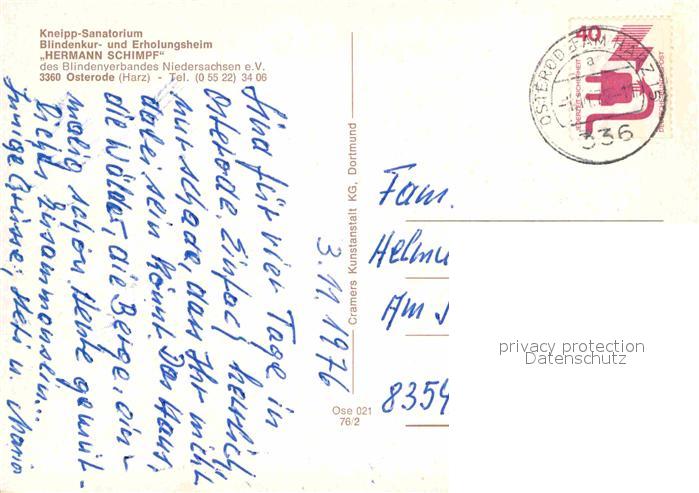 Kneipp-Sanatorium
Blindenkur- und Erholungsheim
„HERMANN SCHIMPF“
des Blindenverbandes Niedersachsen e.V.
3360 Osterode (Harz) - Tel. (0 55 22) 34 06
3.11.1976
Sind für vier Tage in
Osterode. Einfach herrlich,
nur schade, dass Ihr nicht
dabei sein könnt. Das Haus,
die Wälder, die Berge, ein-
malig schön. Heute gemüt-
liches Zusammensein...
Innige Grüsse, Heti u. Mario
Cramers Kunstanstalt KG, Dortmund
Ose 021
76/2
40
JEDERZEIT SICHERHEIT
DEUTSCHE BUNDESPOST
OSTERODE AM HARZ 1
a
336
Fam.
Helmu
Am
8354
privacy protection
Datenschutz